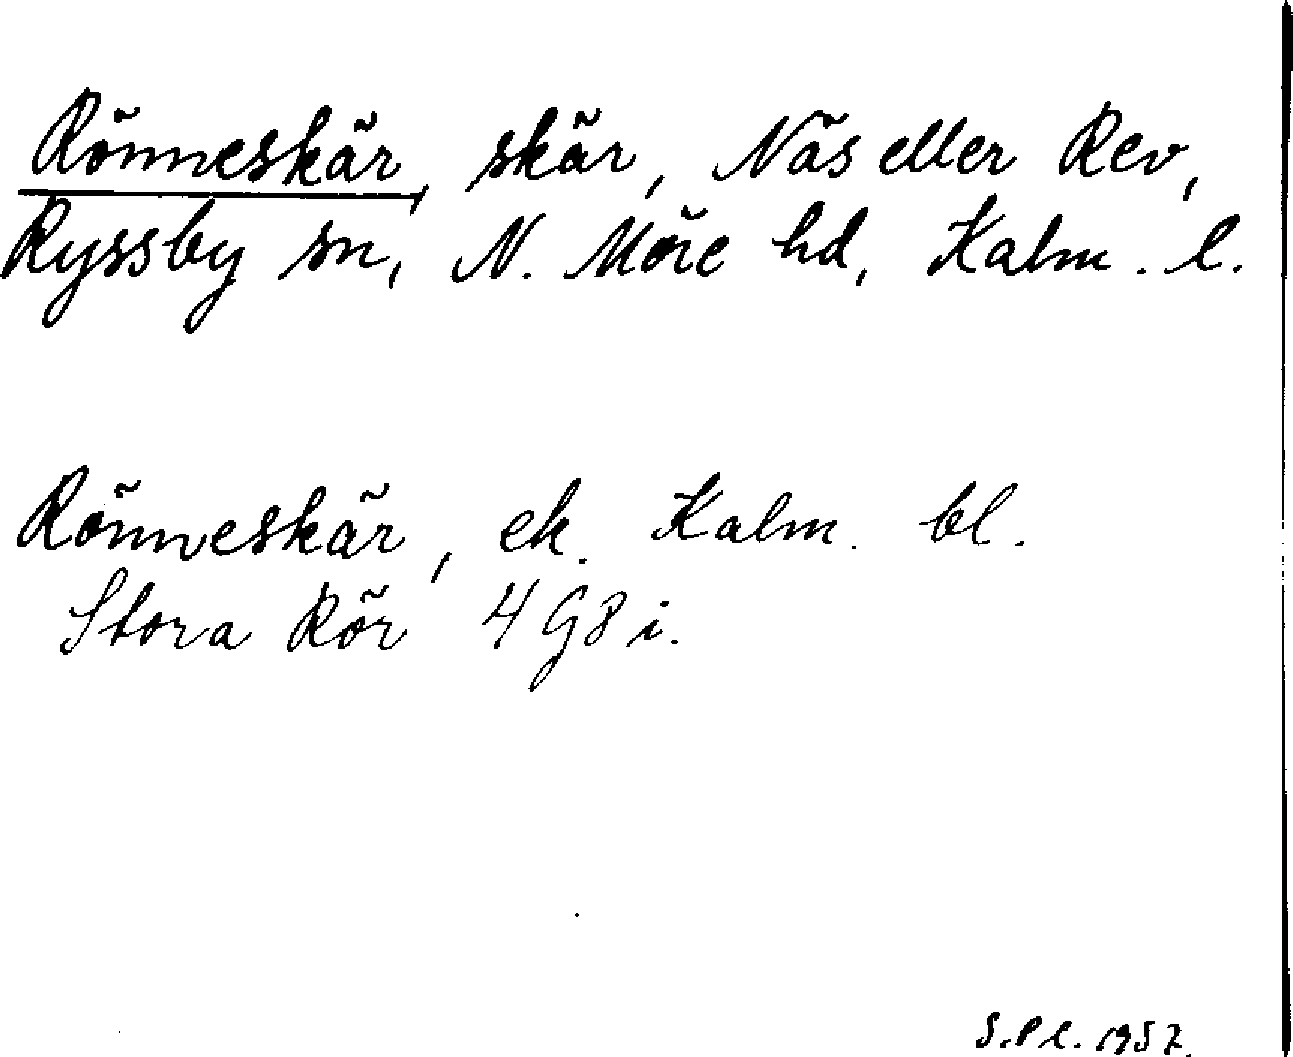 Rönneskär, skär, Näs eller Rev,
Ryssby sn, N. Möre hd, Kalm. l.
Rönneskär, ek. Kalm. bl.
Stora Rör 4 G 8 i.
S.P.l. 1957.